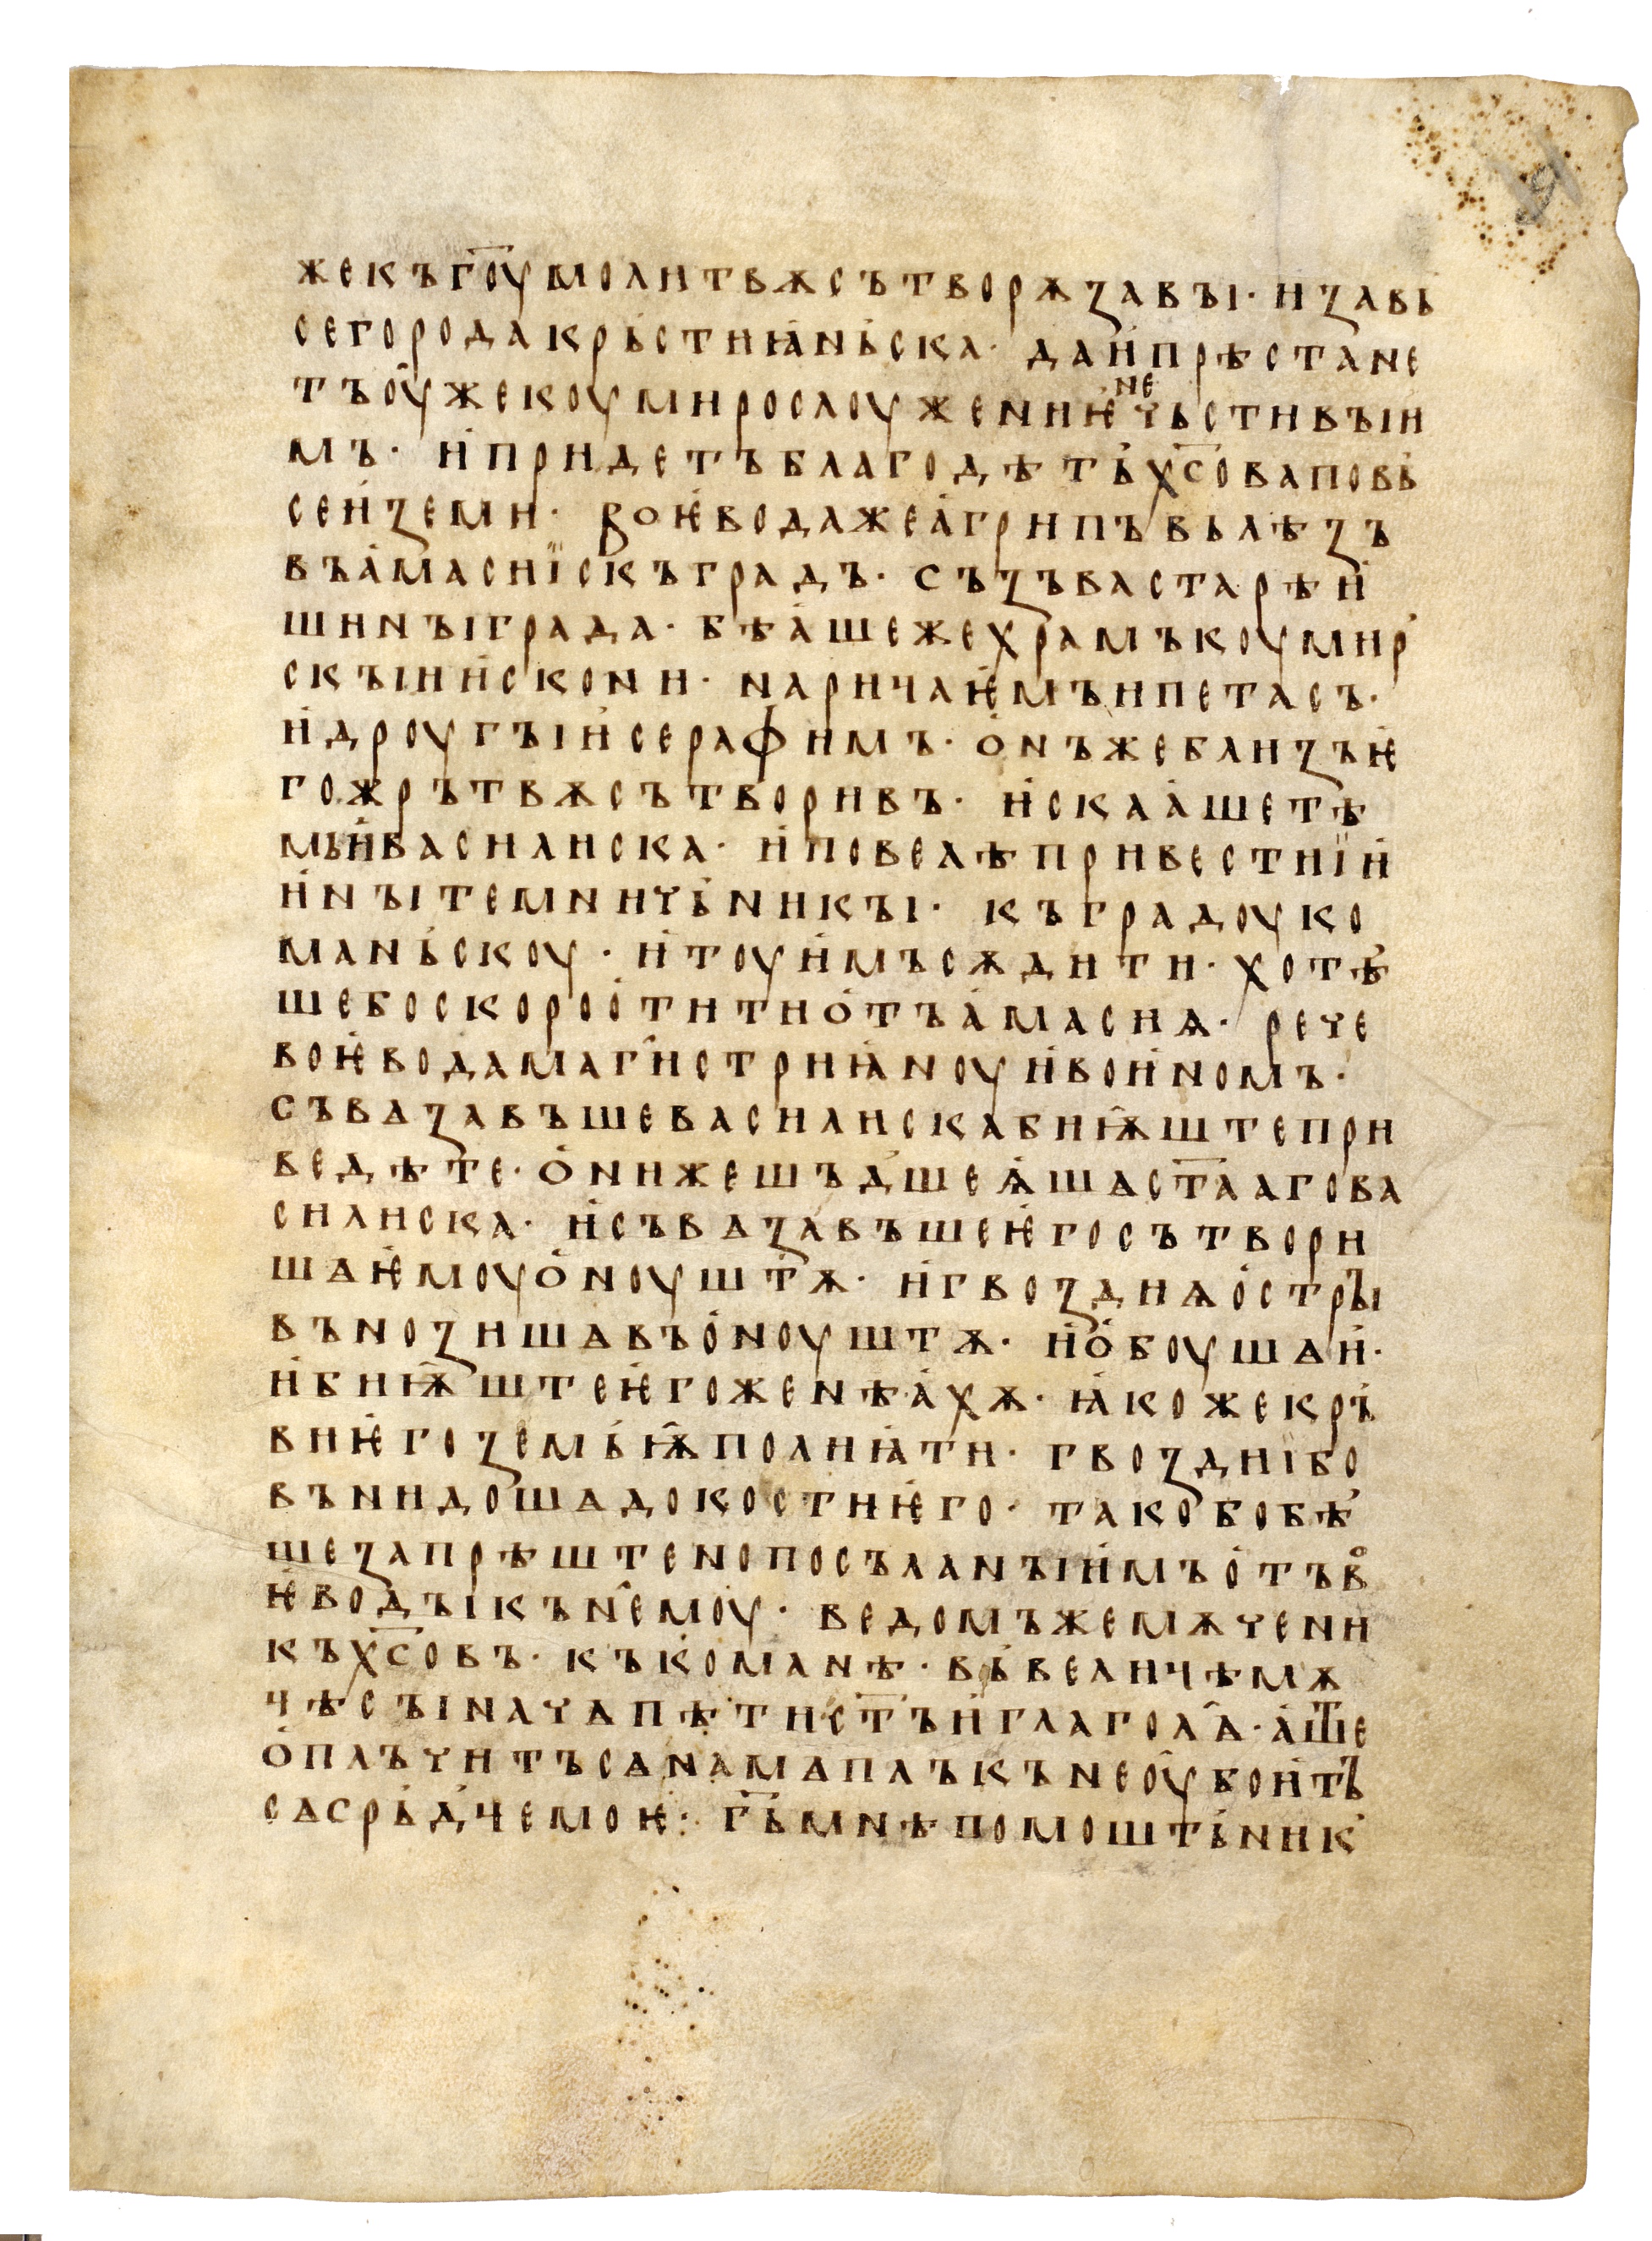 жекъг҃оумолитвѫсътворѭзавꙑ· изавь
сегородакрьстиꙗ҅ньска· даи҅прѣстане
тъоу҅жекоумирослоужениѥ҅нечьстивꙑи
мъ· и҅придетъблагодѣть҅х҃со҅ваповь
сеи҅ꙁеми· воѥ҅водажеа҅грипъвьлѣꙁъ
въа҅масиїскъградъ· съꙁъвастарѣи҅
шинꙑграда· бѣа҅шежехрамъкоумир҅
скꙑии҅скони· наричаѥ҅мъипетасъ·
и҅дроугꙑи҅серафимъ· о҅нъжеблиꙁъѥ҅
гожрътвѫсътворивъ· и҅скаа҅шетѣ
мьи҅василиска· и҅повелѣпривестиїи҅
и҅нꙑтемничьникꙑ· къградоуко
маньскоу· и҅тоуи҅мъсѫдити· хотѣ҅
шебоскороо҅титио҅тъа҅масиѧ· рече
воѥ҅водамаг҄истриꙗ҅ноуи҅вои҅номъ·
съваꙁавъшевасилискабиѭ҅штепри
ведѣте· о҅нижешъд҅шеѩ҅шѧст҃аагова
силиска· и҅съвѧꙁавъшеѥ҅госътвори
шѧѥ҅моуо҅ноуштѫ· и҅гвоꙁдиѧо҅стрꙑ
въноꙁишѧвъо҅ноуштѫ· и҅о҅боушѧи҅·
и҅биѭ҅штеѥ҅гоженѣа҅хѫ· ꙗ҅кожекръ҅
виѥ҅гоꙁемьѭ҅полиꙗ҅ти· гвоꙁдиїбо
въниидошѧдокостиѥ҅го· такообобѣ҅
шеꙁапрѣштенопосъланꙑи҅мъо҅тъво
ѥ҅водꙑкън҄емоу· ведомъжемѫчени
къх҃совъ· къкоманѣ· вь҅величѣмѫ
чѣсꙑначѧпѣтист҃ъи҅глагол҄ѧ· а҅ште
о҅плъчитъсѧнамѧплъкънеоу҅бои҅тъ
сѧсрьд҅чемоѥ:· г҃ьмнѣпомоштьник҅